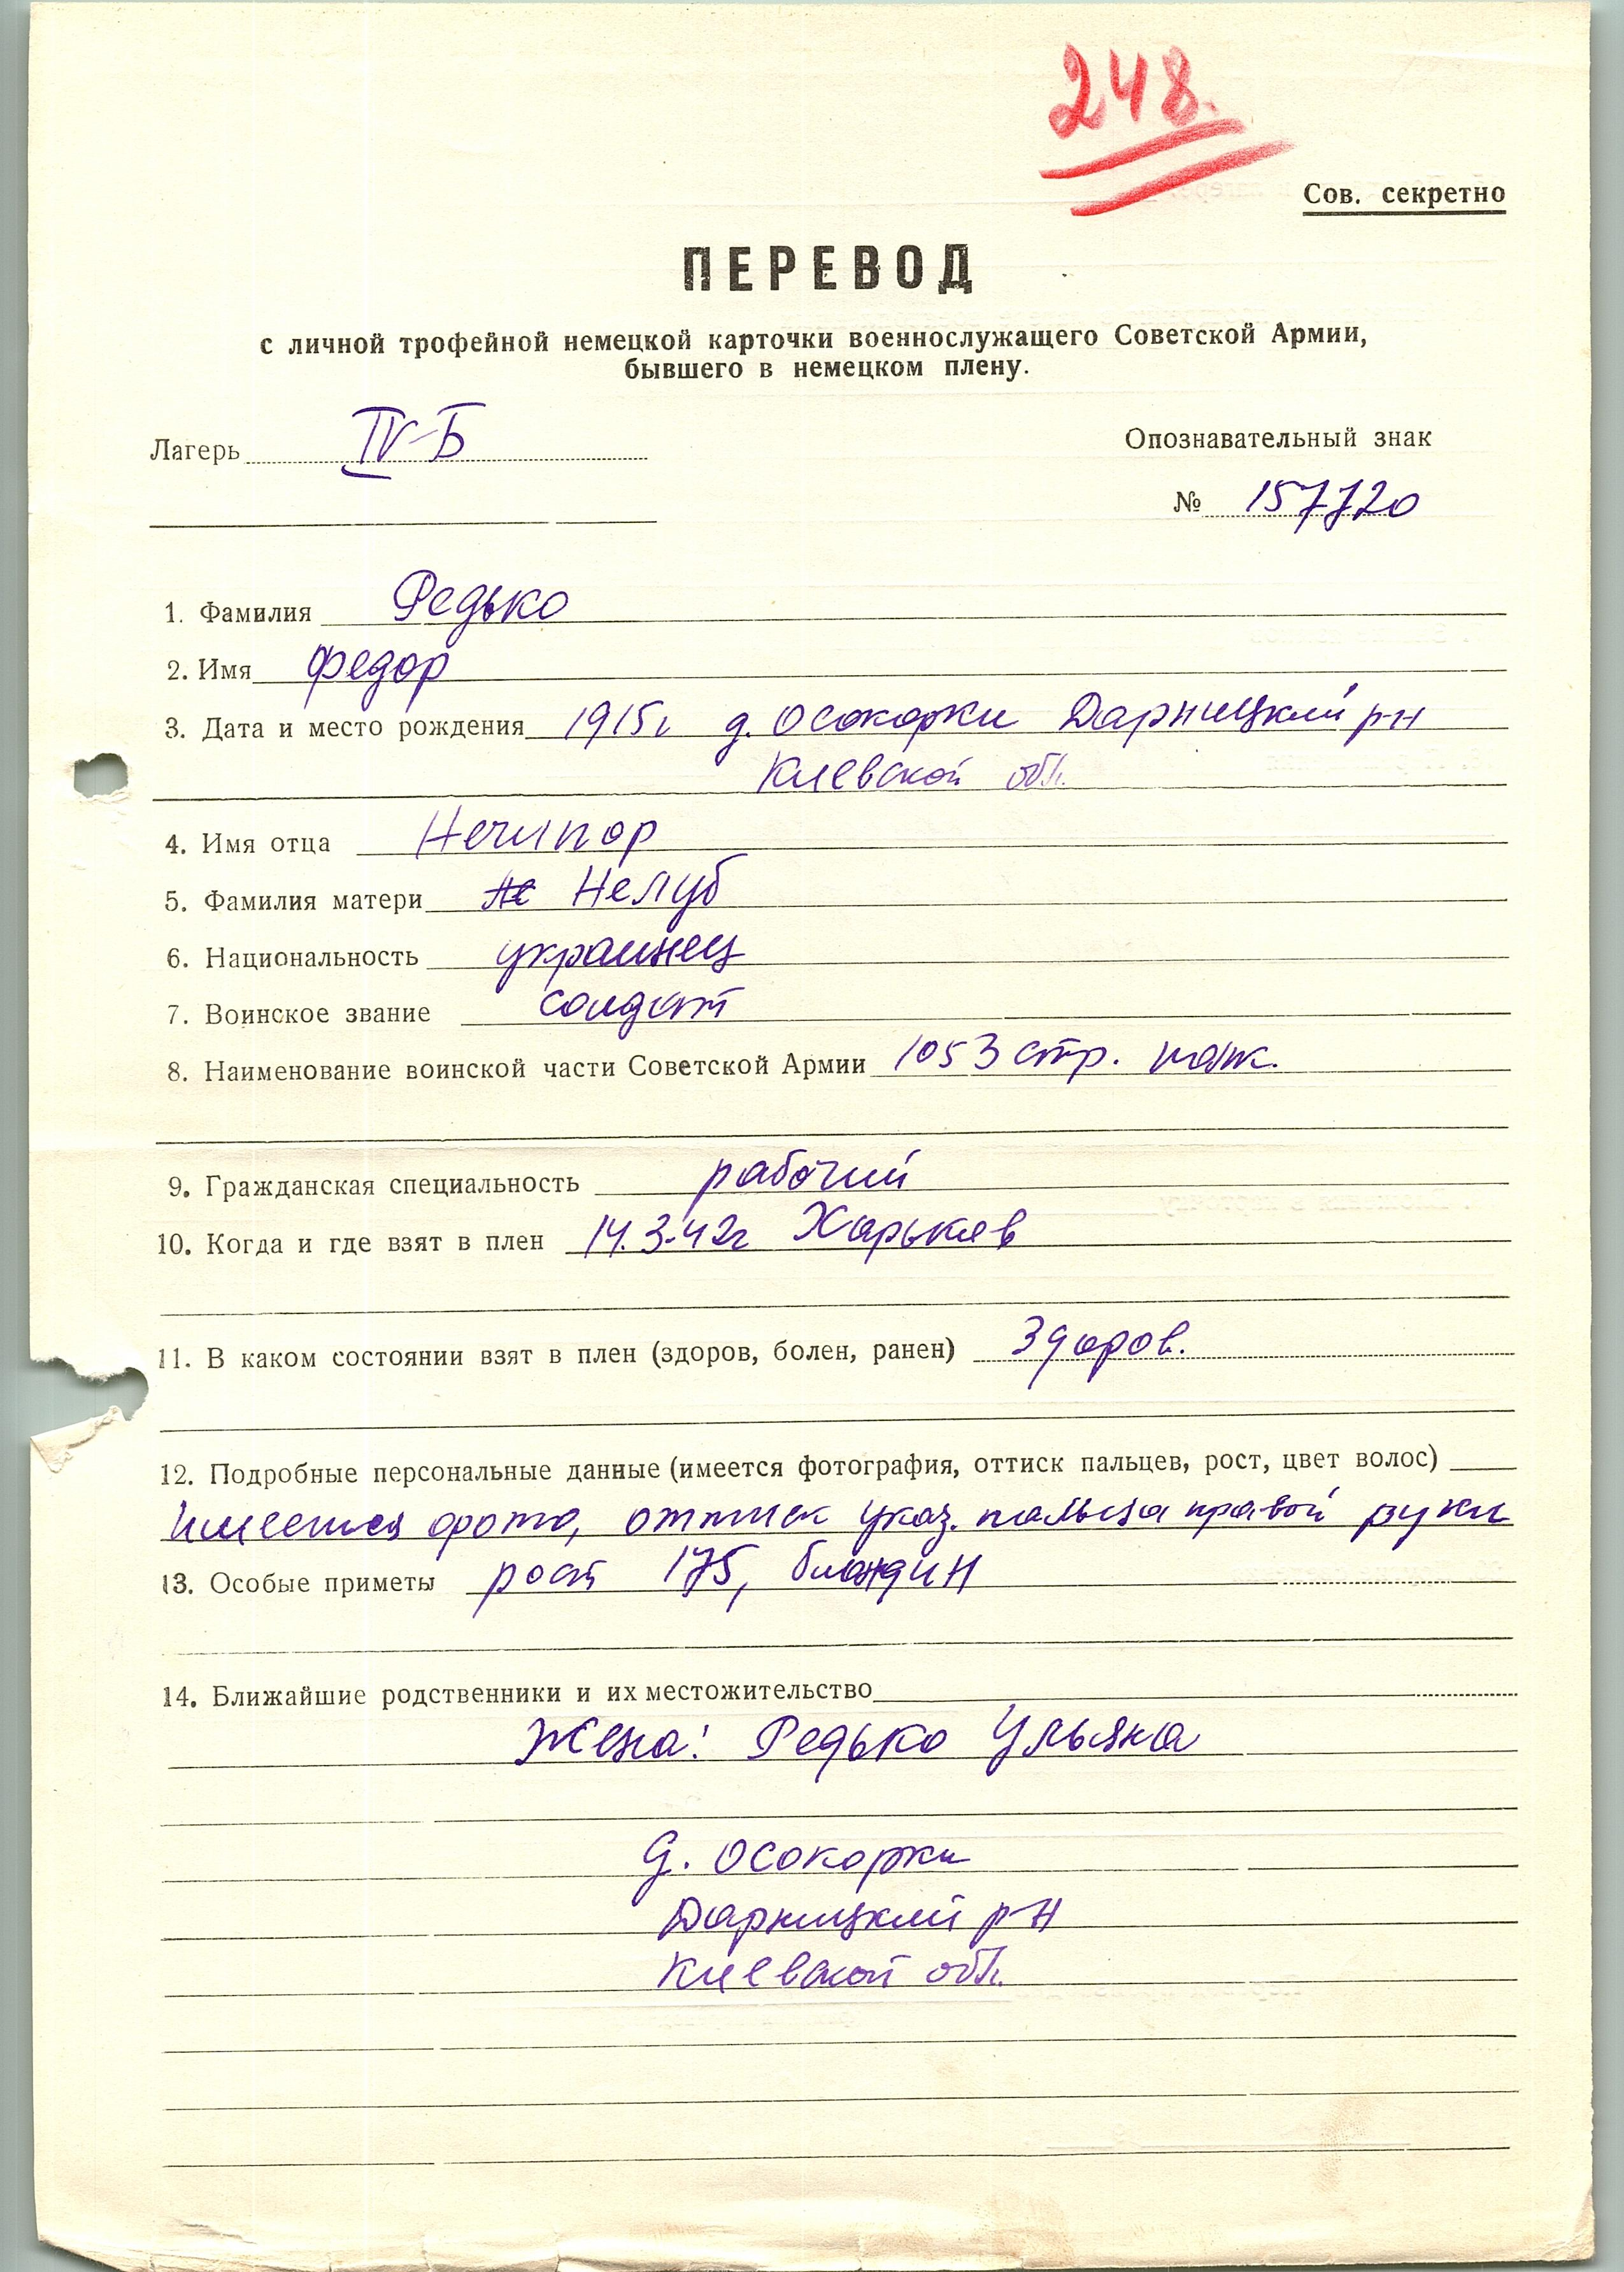 248.
Сов. секретно
ПЕРЕВОД
с личной трофейной немецкой карточки военнослужащего Советской Армии,
бывшего в немецком плену.
Лагерь IV-Б
Опознавательный знак
№ 157720
1. Фамилия Редько
2. Имя Федор
3. Дата и место рождения 1915г д. Осокорки Дарницкий р-н
Киевской обл.
4. Имя отца Нечипор
5. Фамилия матери Нелуб
6. Национальность украинец
7. Воинское звание солдат
8. Наименование воинской части Советской Армии 1053 стр. полк.
9. Гражданская специальность рабочий
10. Когда и где взят в плен 14.3.42г Харьков
11. В каком состоянии взят в плен (здоров, болен, ранен) Здоров.
12. Подробные персональные данные (имеется фотография, оттиск пальцев, рост, цвет волос)
Имеется фото, оттиск указ. пальца правой руки
13. Особые приметы рост 175, блондин
14. Ближайшие родственники и их местожительство
Жена: Редько Ульяна
д. Осокорки
Дарницкий р-н
Киевской обл.